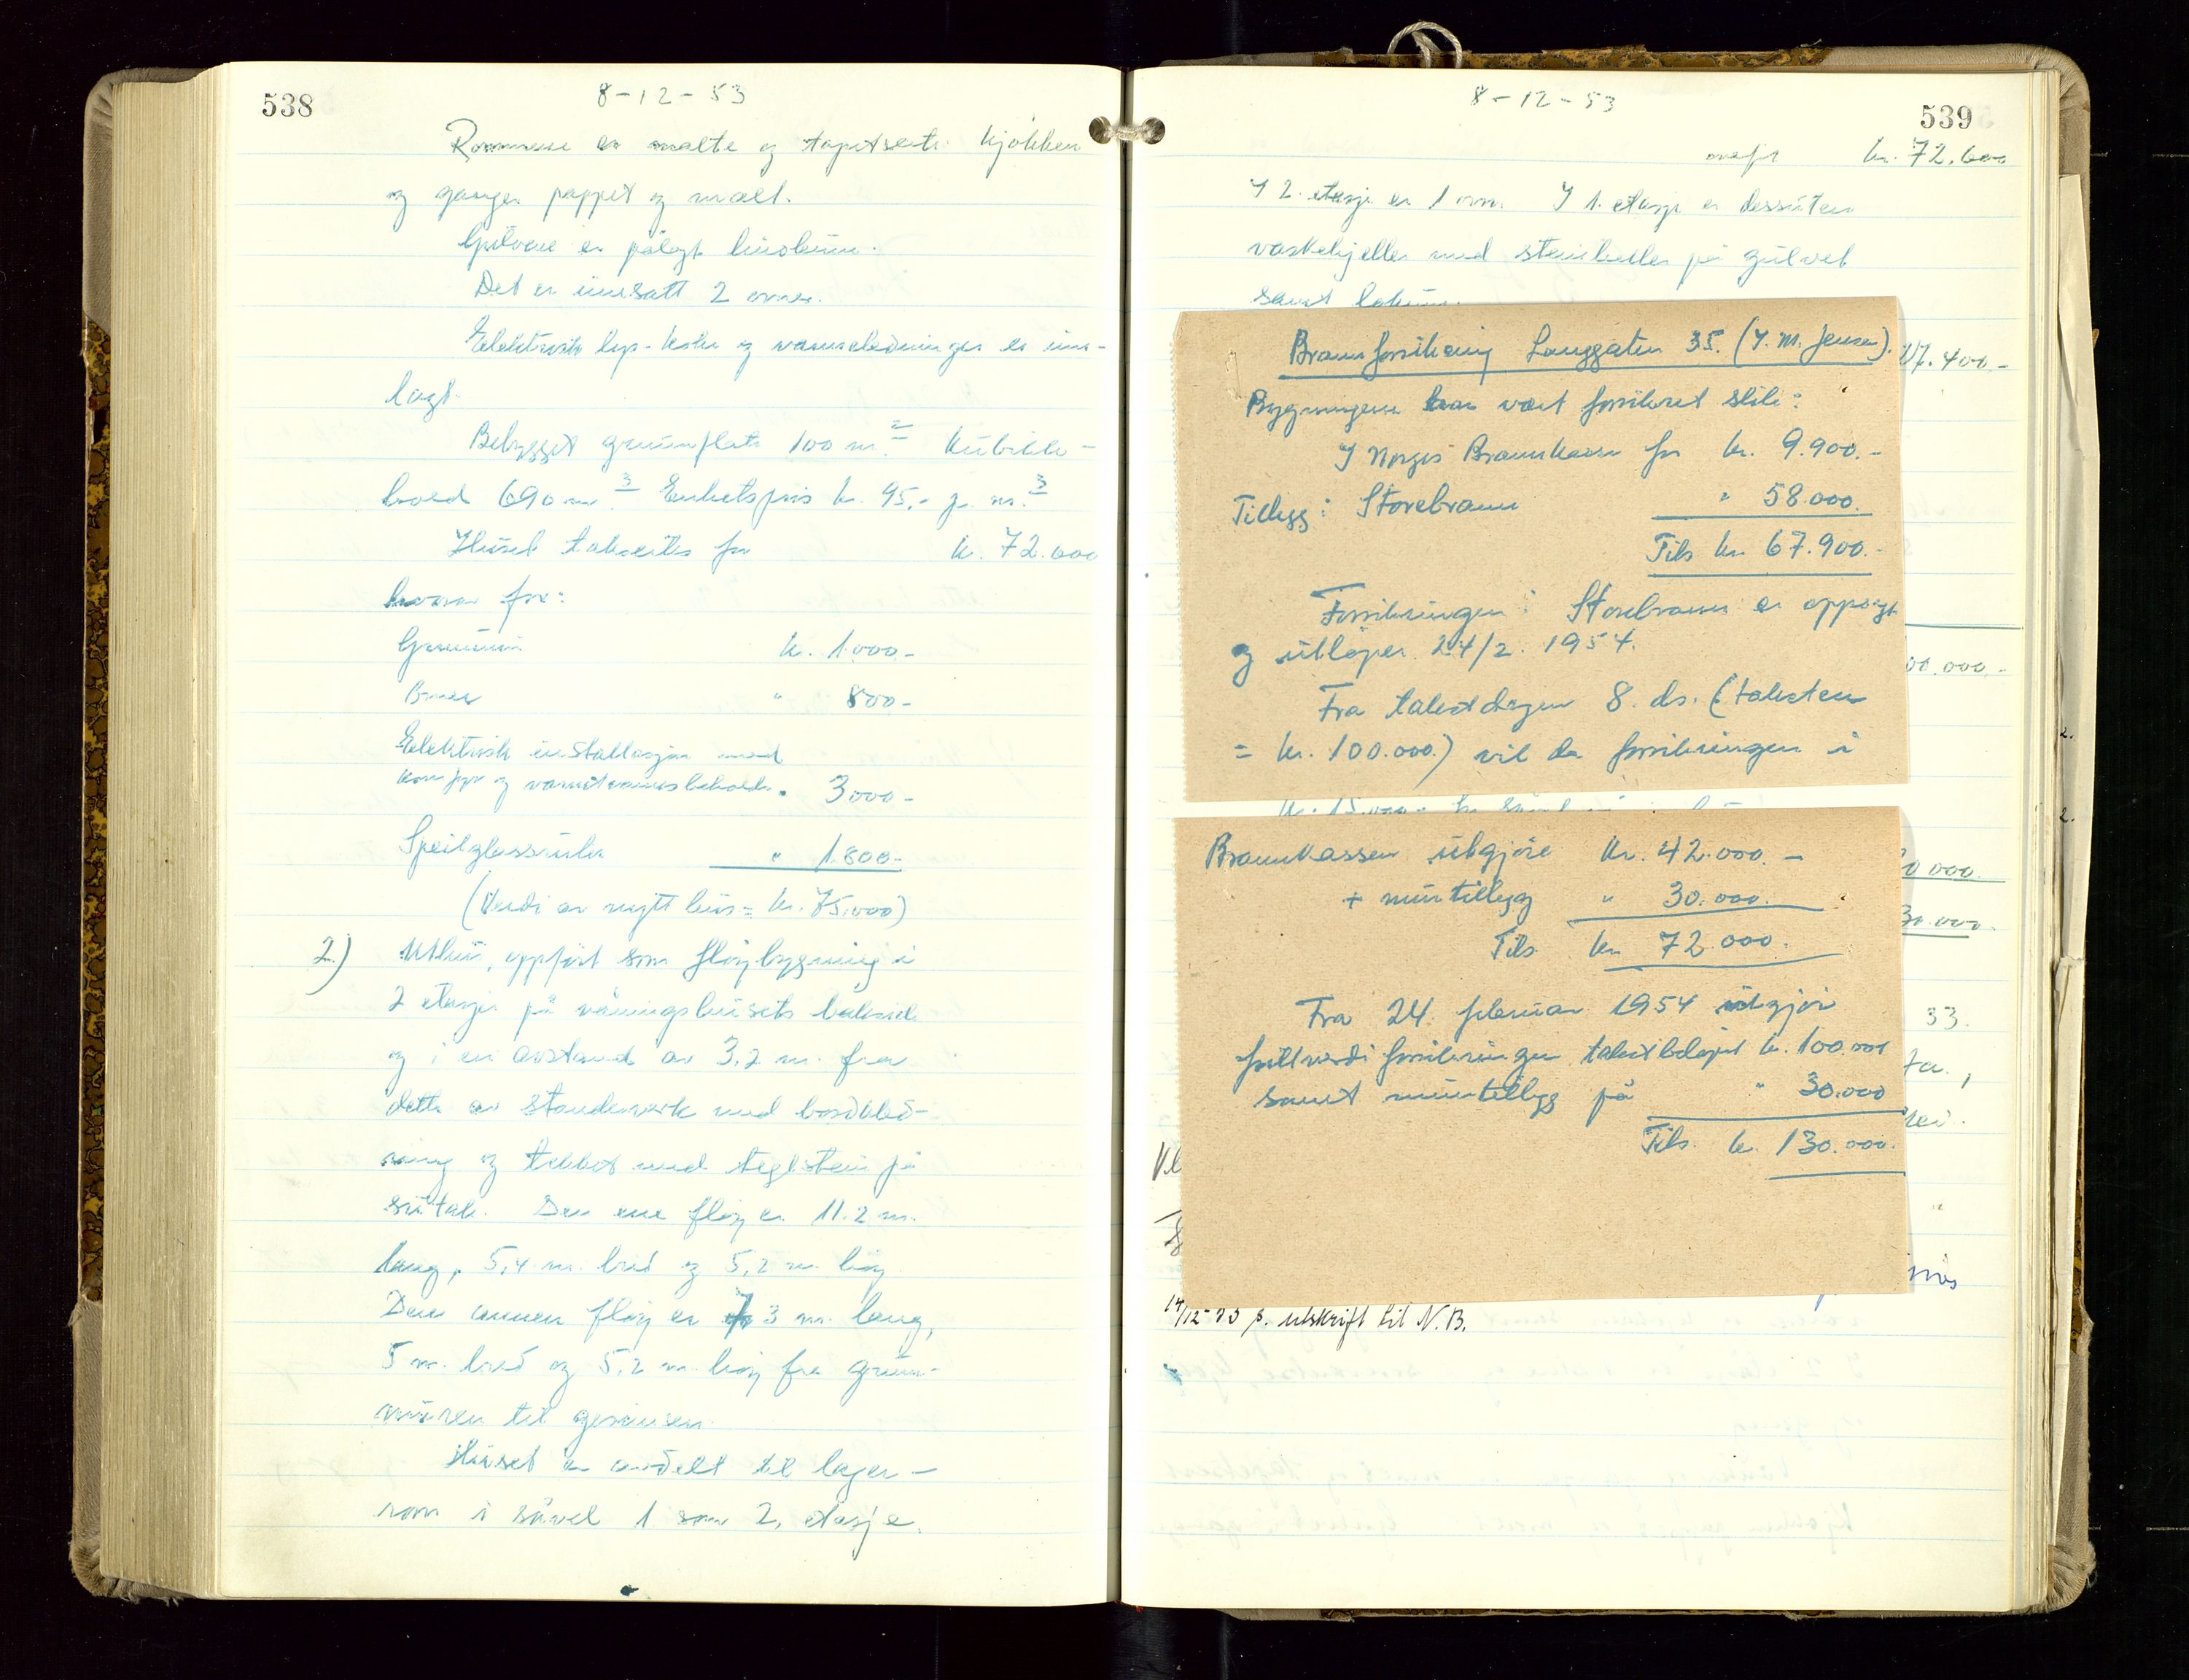 538
8-12-53
Rommene er malte og tapetserte. Kjøkken
og ganger pappet og malt.
Gulvene er pålagt linoleum.
Det er innsatt 2 ovner.
Elektrisk lys- koke og varmeledninger er inn-
lagt.
Bebygget grunnflate 100 m.² Kubikk-
hold 690 m.³ Enhetspris kr. 95,- pr. m.³
Huset takseres for kr. 72.600
hvorav for:
Grunnmur kr. 1.000-
Ovner " 800-
Elektrisk installasjon med
komfyr og varmtvannsbeholder " 3000-
Speilglassruter " 1.800-
(Verdi av nytt hus = kr. 75.000)
2.) Uthus, oppført som fløybygning i
2 etasjer på våningshusets bakside
og i en avstand av 3,2 m. fra
dette av standerverk med bordkled-
ning og tekket med teglstein på
sutak. Den ene fløy er 11.2 m.
lang, 5,4 m. bred og 5,2 m. høy
Den annen fløy er 7,3 m. lang,
5 m. bred og 5,2 m. høy fra grunn-
muren til gesimsen.
Huset er avdelt til lager-
rom i såvel 1 som 2. etasje.
8-12-53
539
overført kr. 72.600
I 2. etasje er 1 ovn. I 1. etasje er dessuten
vaskekjeller med steinheller på gulvet
samt
17.400.-
Brannforsikring Langgaten 35. (J. M. Jensen).
Bygningene har vært forsikret slik:
I Norges Brannkasse for kr. 9.900.-
Tillegg i Storebrann " 58.000.
Tils kr. 67.900.-
Forsikringen i Storebrann er oppsagt
og utløper 24/2. 1954.
Fra takstdagen 8. ds. (taksten
= kr. 100.000.) vil da forsikringen i
00.000.-
kr. 15.000.-
Brannkassen utgjøre kr. 42.000.-
+ murtillegg " 30.000.
Tils kr 72.000.
Fra 24. februar 1954 utgjør
fullverdiforsikringen takstbeløpet kr. 100.000
samt murtillegg på " 30.000
Tils. kr. 130.000.
0 000.
30.000.
33.
14/12-53 s. utskrift til N.B.